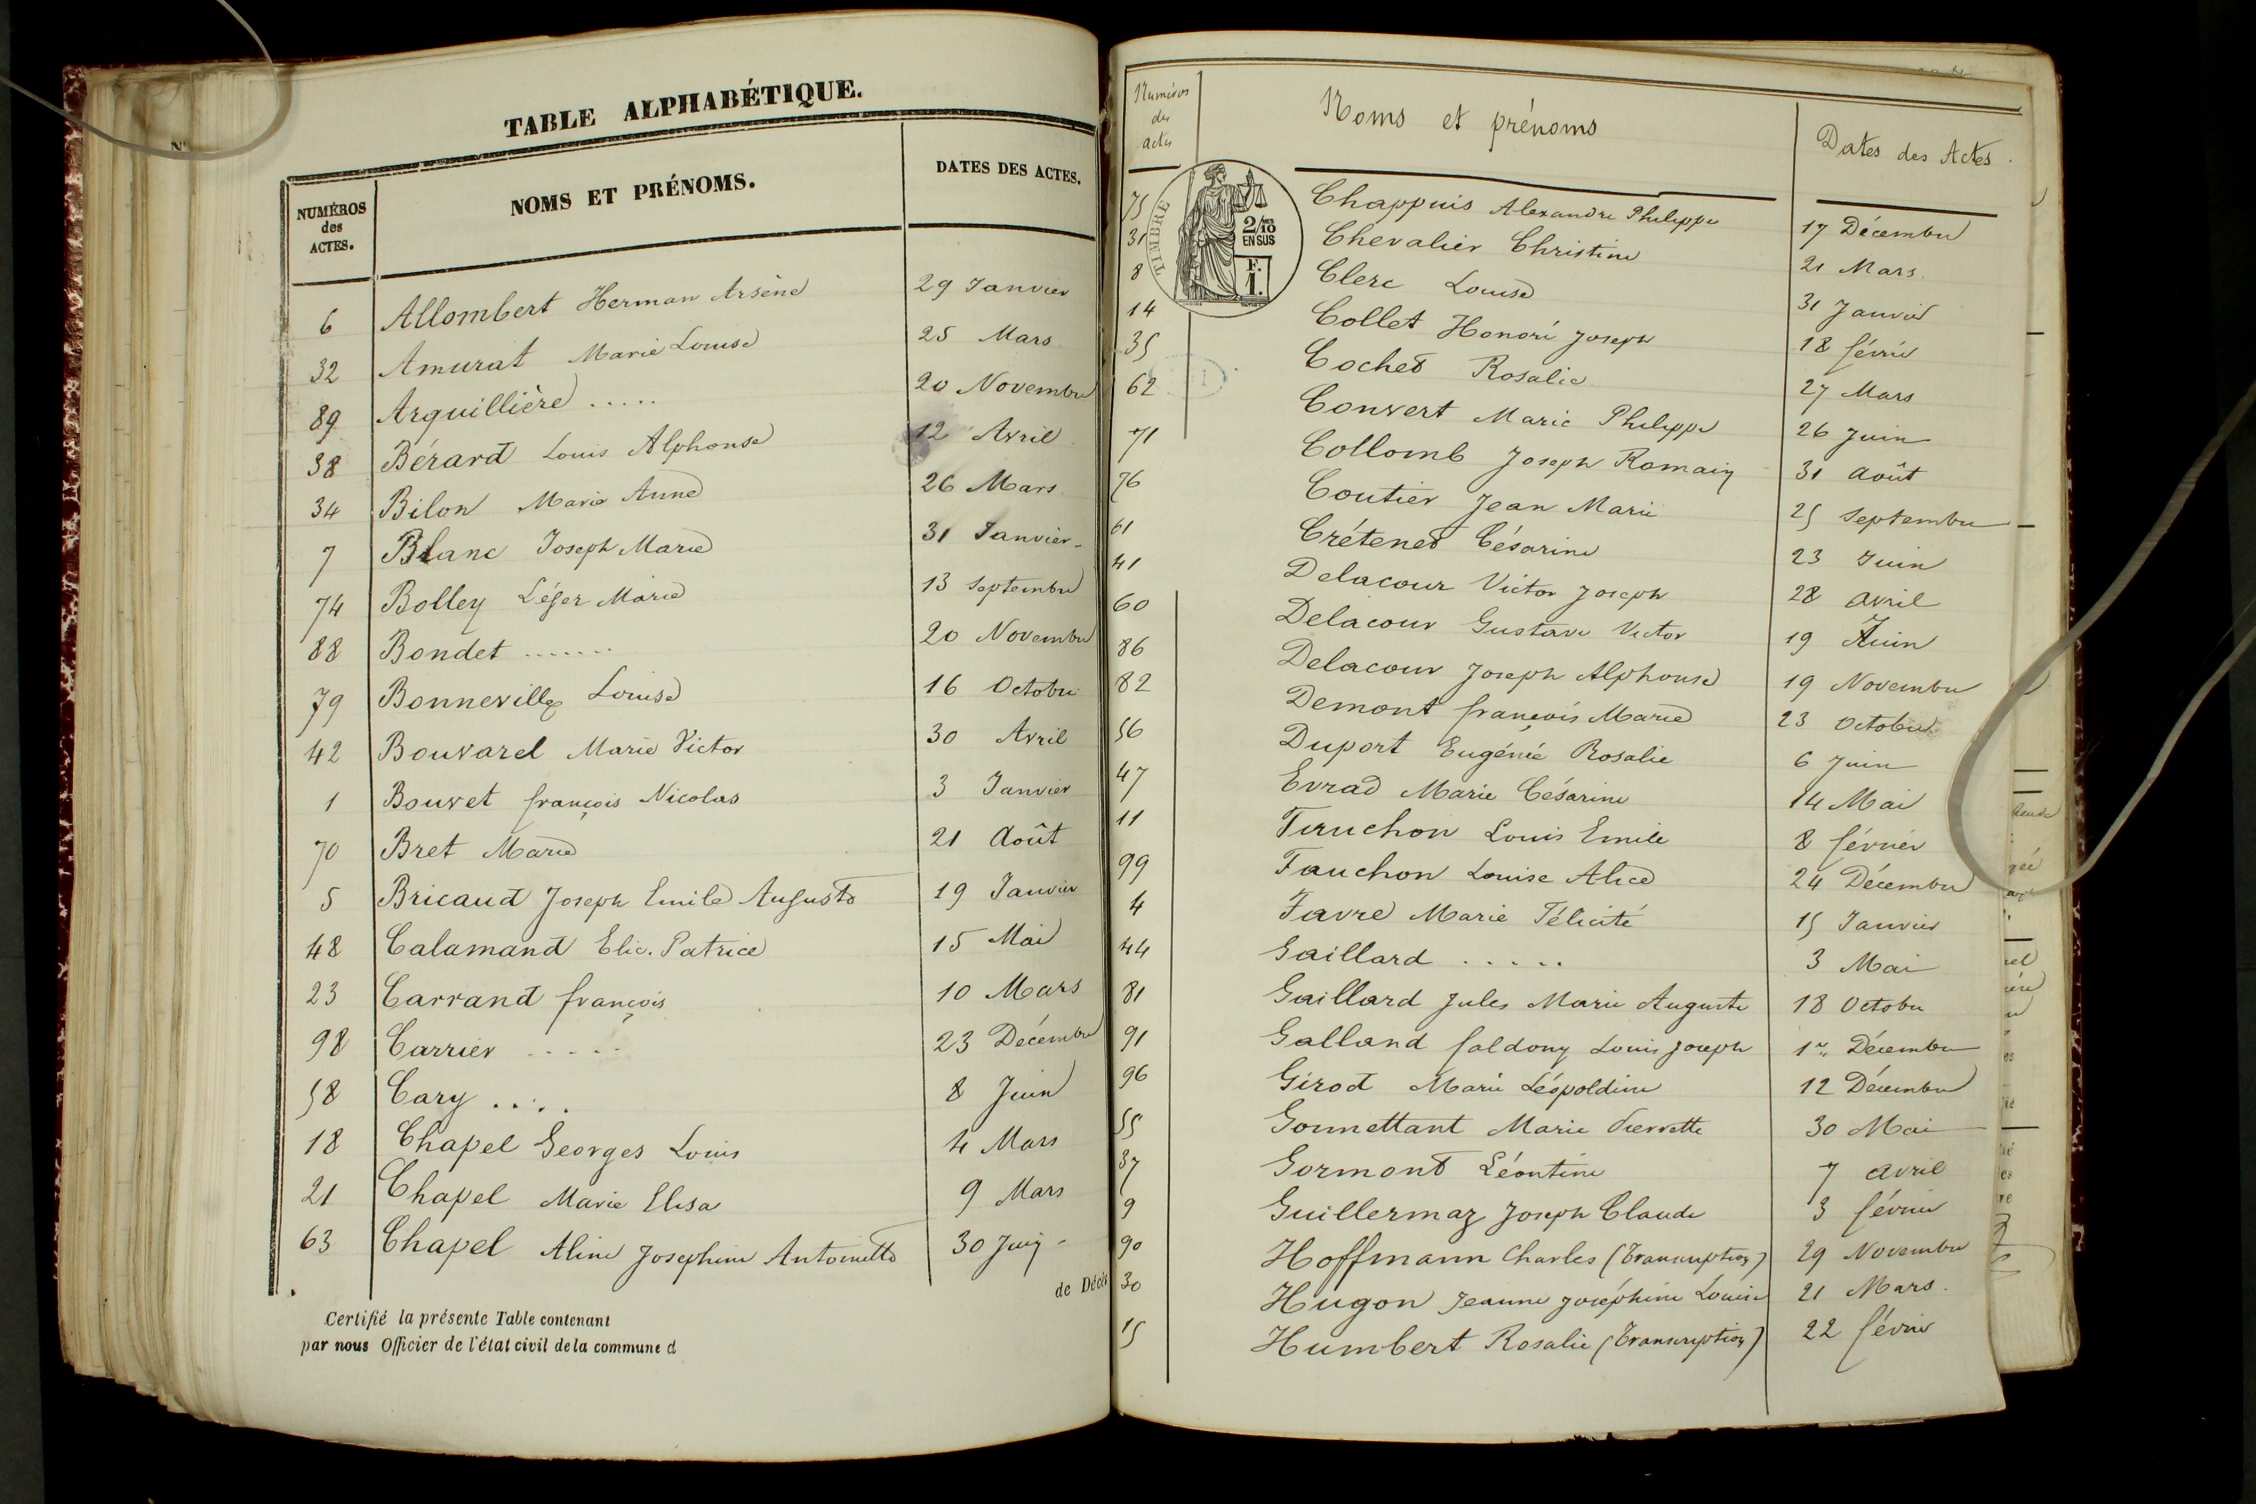 TABLE ALPHABÉTIQUE.
NUMÉROS des ACTES. NOMS ET PRÉNOMS. DATES DES ACTES.
6 Allombert Herman Arsène 29 Janvier
32 Amurat Marie Louise 25 Mars
89 Arquillière ..... 20 Novembre
38 Bérard Louis Alphonse 12 Avril
34 Bilon Marie Anne 26 Mars
7 Blanc Joseph Marie 31 Janvier
74 Bolley Léger Marie 13 Septembre
88 Bondet ....... 20 Novembre
79 Bonneville Louise 16 Octobre
42 Bouvard Marie Victor 30 Avril
1 Bouvet françois Nicolas 3 Janvier
70 Bret Marie 21 Août
5 Bricaud Joseph Emile Auguste 19 Janvier
48 Calamand Elie. Patrice 15 Mai
23 Carrand françois 10 Mars
98 Carrier ..... 23 Décembre
58 Cary .... 8 Juin
18 Chapel Georges Louis 4 Mars
21 Chapel Marie Elisa 9 Mars
63 Chapel Aline Josephine Antoinette 30 Juin
de Décès
Certifié la présente Table contenant
par nous Officier de l'état civil de la commune d
Numéros des actes Noms et prénoms Dates des Actes.
TIMBRE
2/10 EN SUS
F. 1.
75 Chappuis Alexandre Philippe 17 Décembre
31 Chevalier Christine 21 Mars
8 Clerc Louise 31 Janvier
14 Collet Honoré Joseph 18 février
35 Cochet Rosalie 27 Mars
62 Convert Marie Philippe 26 Juin
71 Collomb Joseph Romain 31 août
76 Coutier Jean Marie 25 Septembre
61 Crétenet Césarine 23 Juin
41 Delacour Victor Joseph 28 avril
60 Delacour Gustave Victor 19 Juin
86 Delacour Joseph Alphonse 19 Novembre
82 Demont françois Marie 23 octobre
56 Duport Eugénie Rosalie 6 Juin
47 Evrad Marie Césarine 14 Mai
11 Louis Emile 8 février
99 Fauchon Louise Alice 24 Décembre
4 Favre Marie Félicité 15 Janvier
44 Gaillard ..... 3 Mai
81 Gaillard Jules Marie Auguste 18 Octobre
91 Galland Louis Joseph 1er Décembre
96 Girod Marie Léopoldine 12 Décembre
55 Gonnettant Marie Pierrette 30 Mai
37 Gormond Léontine 7 avril
9 Guillermaz Joseph Claude 3 février
90 Hoffmann Charles (Transcription) 29 Novembre
30 Hugon Jeanne Joséphine Louise 21 Mars.
15 Humbert Rosalie (Transcription) 22 février